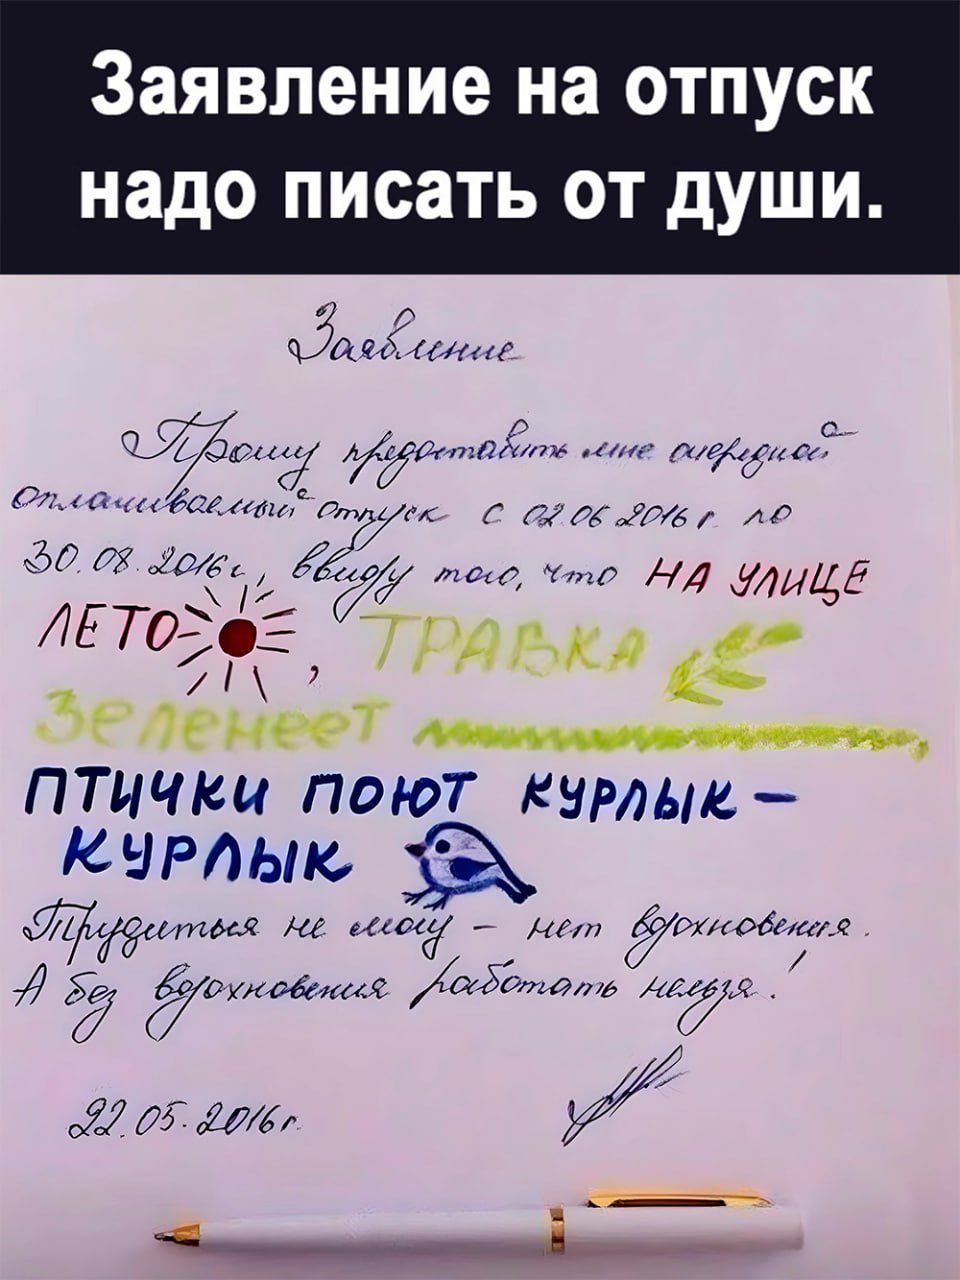 Заявление на отпуск
надо писать от души.
Заявление
Прошу предоставить мне очередной
оплачиваемый отпуск с 02.06.2016 г. по
30.08.2016г., ввиду того, что НА УЛИЦЕ
ЛЕТО, ТРАВКА
Зеленеет
ПТИЧКИ ПОЮТ КУРЛЫК -
КУРЛЫК
Трудиться не могу - нет вдохновения.
А без вдохновения работать нельзя!
22.05.2016г.